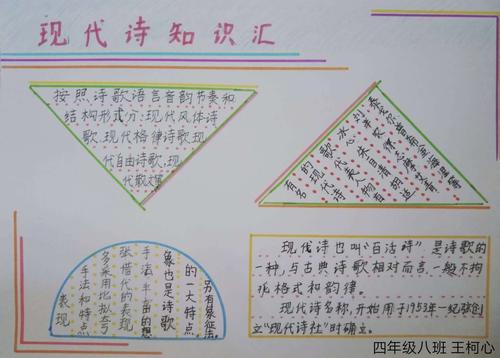 现代诗知识汇
按照诗歌语言音韵节奏和
结构形式分:现代风体诗
歌.现代格律诗歌.现
代自由诗歌.现
代散文诗
有名
的现代诗
歌代表人物
表现
手法和特点
多采用比拟夸
张借代的表现
手法丰富的想
象也是诗歌
的一大特点
另有象征法
现代诗也叫“白话诗”是诗歌的
一种,与古典诗歌相对而言,一般不拘
泥格式和韵律。
现代诗名称,开始用于1953年纪弦创
立“现代诗社”时确立。
四年级八班 王柯心